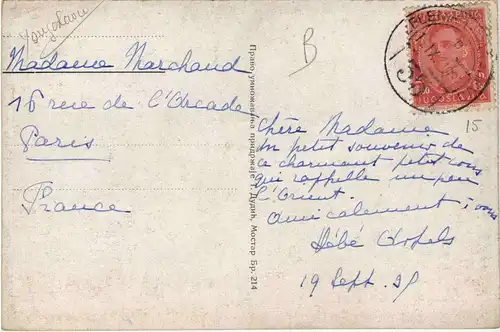 Yougoslavie
Madame Marchand
16 rue de l'Arcade
Paris
France
Право умножавања придржаје Т. Дудић, Мостар Бр. 214
B
15
JUGOSLAVIJA
Chère Madame
un petit souvenir de
ce charmant petit
qui rappelle un peu
l'Orient.
amicalement à vous
Bébé
19 Sept. 35